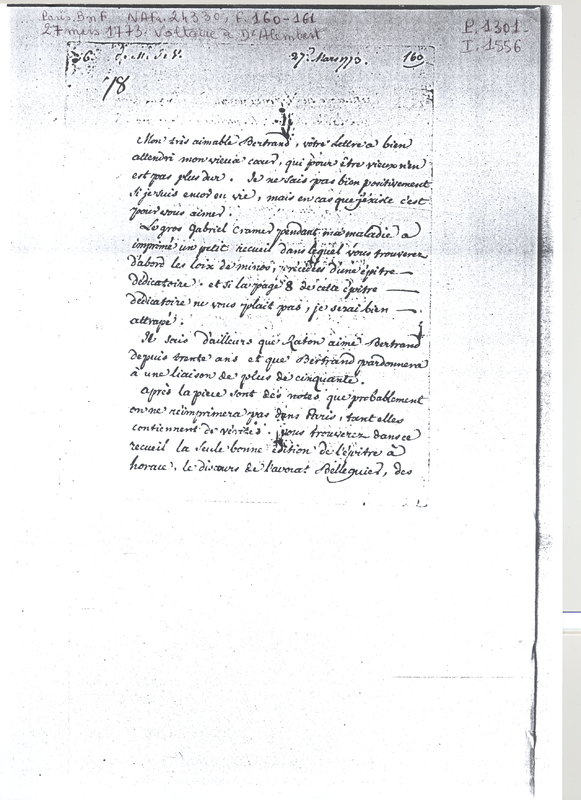 Paris. BnF. NAfr. 24330, f. 160-161
27 mars 1773. Voltaire à D'Alembert
P. 1301
I. 1556
27e. Mars 1773. 160
78
Mon très aimable Bertrand, vôtre lettre a bien
attendri mon vieux cœur, qui pour être vieux n'en
est pas plus dur. Je ne sais pas bien positivement
si je suis encor en vie, mais en cas que j'éxiste c'est
pour vous aimer.
Le gros Gabriel Cramer pendant ma maladie a
imprimé un petit recueil dans lequel vous trouverez
d'abord les loix de minos, précédées d'une épitre —
dédicatoire. et si la page 8 de cette épitre —
dédicatoire ne vous plait pas, je serai bien —
attrapé.
Je sais d'ailleurs que Raton aime Bertrand
depuis trente ans et que Bertrand pardonnera
à une liaison de plus de cinquante.
Après la piece sont des notes que probablement
on ne réimprimera pas dans Paris, tant elles
contiennent de vérités. vous trouverez dans ce
recueil la seule bonne édition de l'épitre à
horace, le discours de l'avocat Belleguier, des